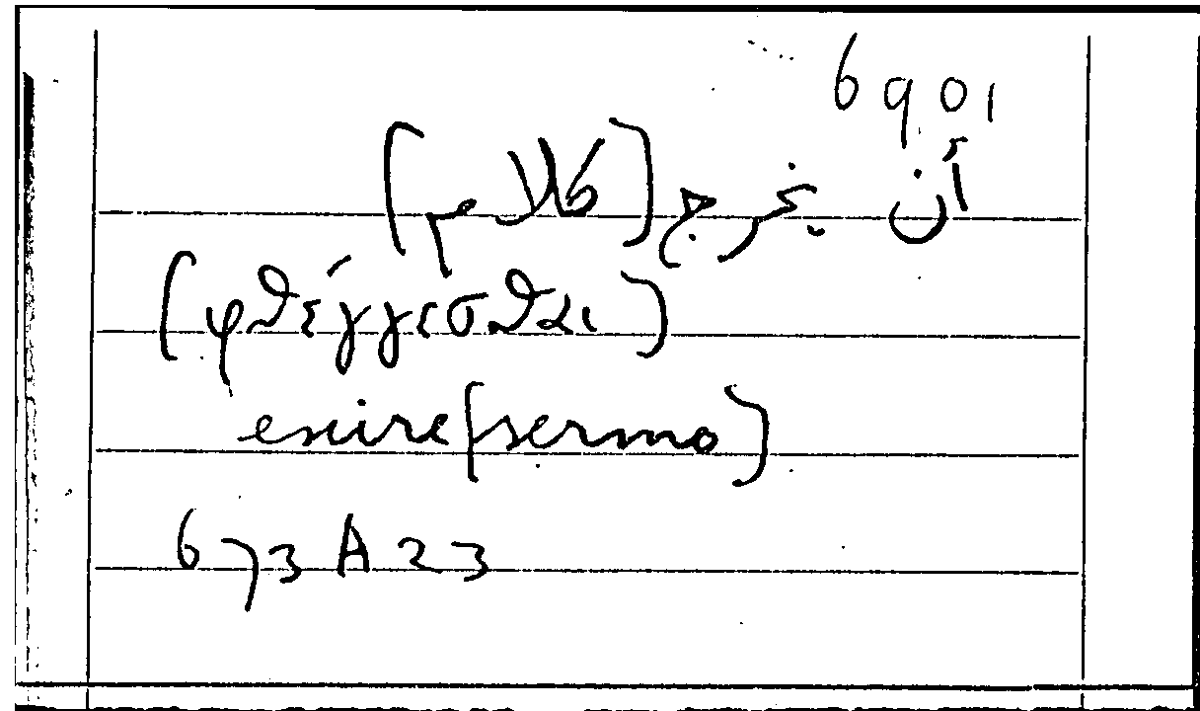 6901
أن يخرج [كلام]
(φθέγγεσθαι)
exire [sermo]
673 A 23